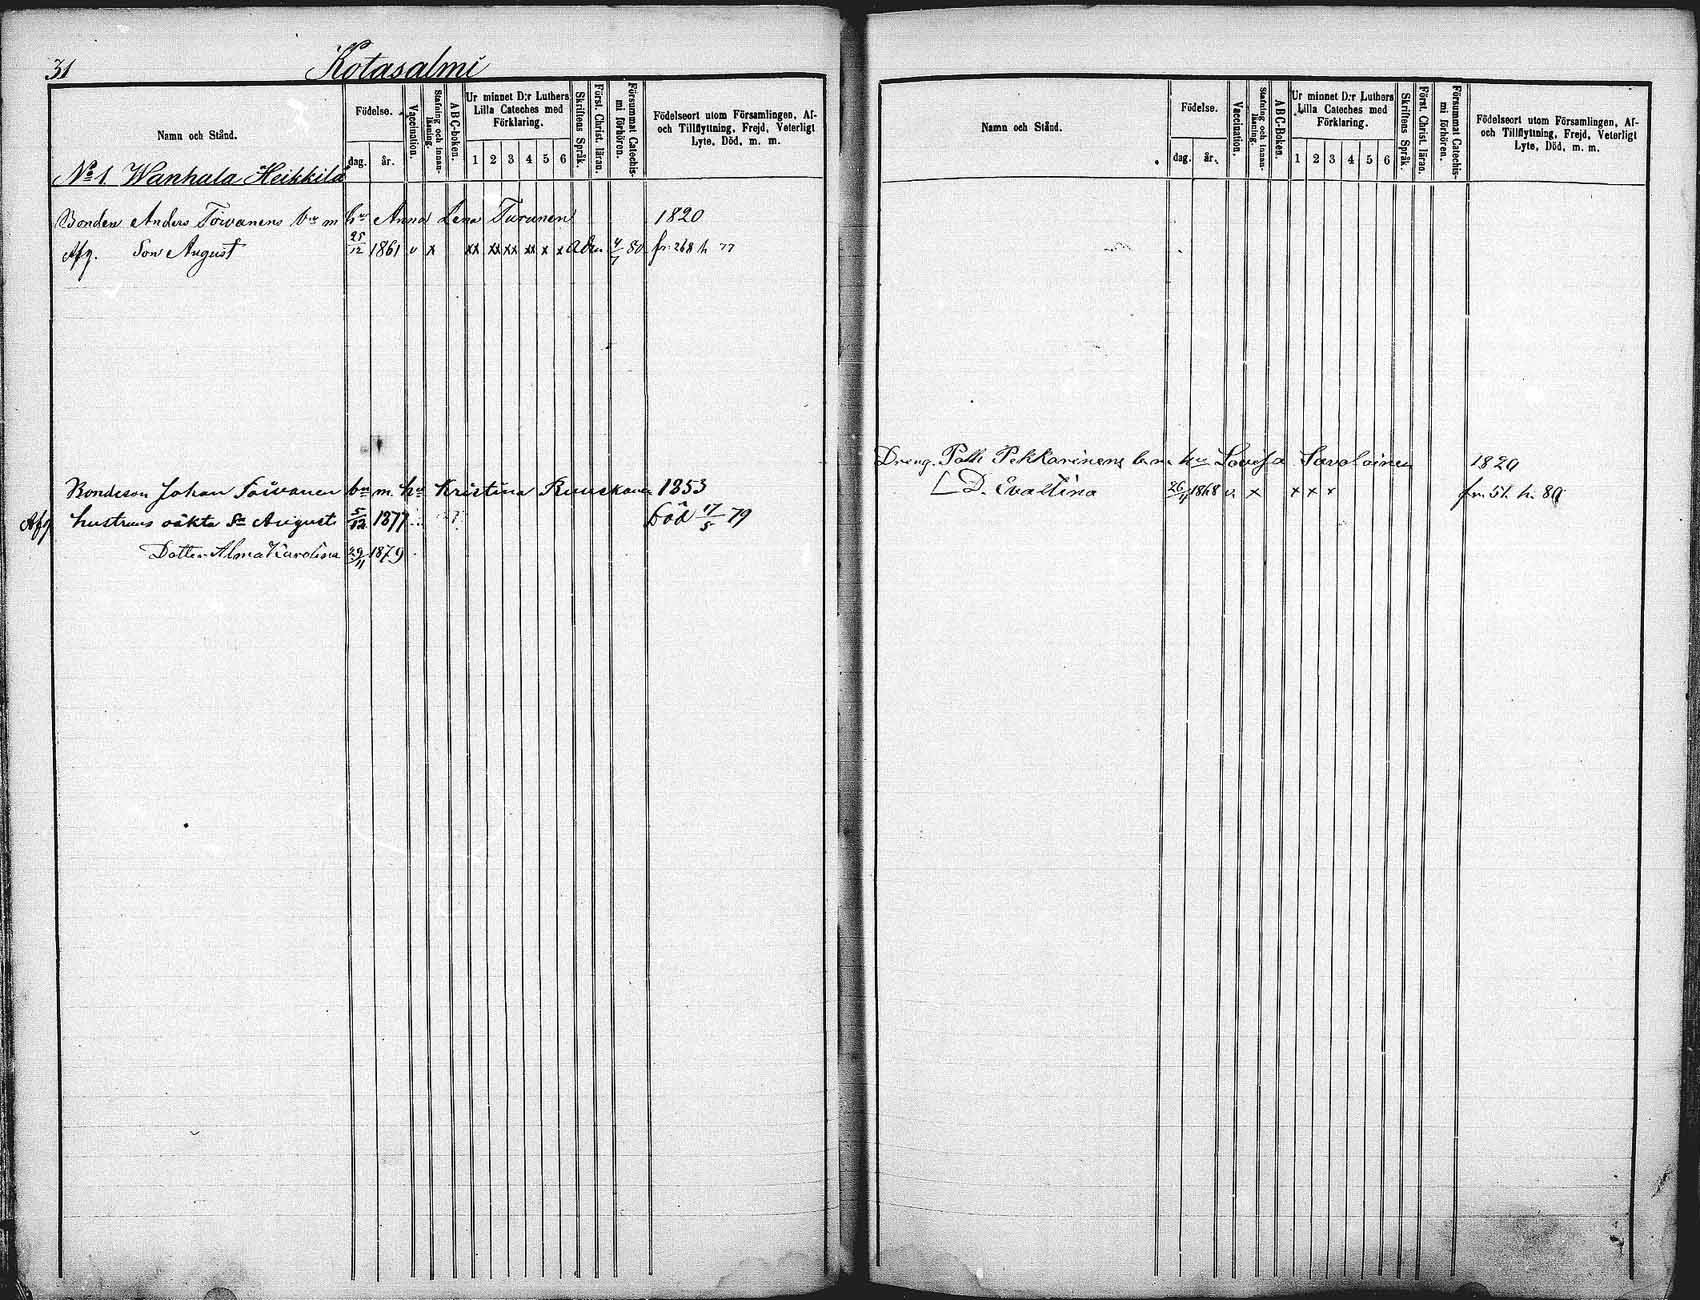 31 Kotasalmi
Namn och Stånd.
Födelse.
dag. år.
Vaccination.
Stafning och innan-läsning.
ABC-boken.
Ur minnet D:r Luthers
Lilla Cateches med
Förklaring.
1 2 3 4 5 6
Skriftens Språk.
Först. Christ. läran.
Försummat Catechis-
mi förhören.
Födelseort utom Församlingen, Af-
och Tillflyttning, Frejd, Veterligt
Lyte, Död, m. m.
No 1. Wanhala Heikkilä
Bonden Anders Toivanens bn m hu Anna Lena Turunen 1820
Afg. Son August 25/12 1861 v x xx xx xx xx x x 80 fr. 268 h 77
Bondeson Johan Toivanen bn m. hu Kristina Ruuskanen 1853
Afg hustruns oäkta Sn August 5/12 1877 Död 17/5 79
Dotter Alma Karolina 29/11 1879
Namn och Stånd.
Födelse.
dag. år.
Vaccination.
Stafning och innan-läsning.
ABC-Boken.
Ur minnet D:r Luthers
Lilla Cateches med
Förklaring.
1 2 3 4 5 6
Skriftens Språk.
Först. Christ. läran.
Försummat Catechis-
mi förhören.
Födelseort utom Församlingen, Af-
och Tillflyttning, Frejd, Veterligt
Lyte, Död, m. m.
Dreng. Pekkarinens hu Lovisa Savolainen 1820
D. Eva Stina 1868 v. x x x x fr. 51 h. 80